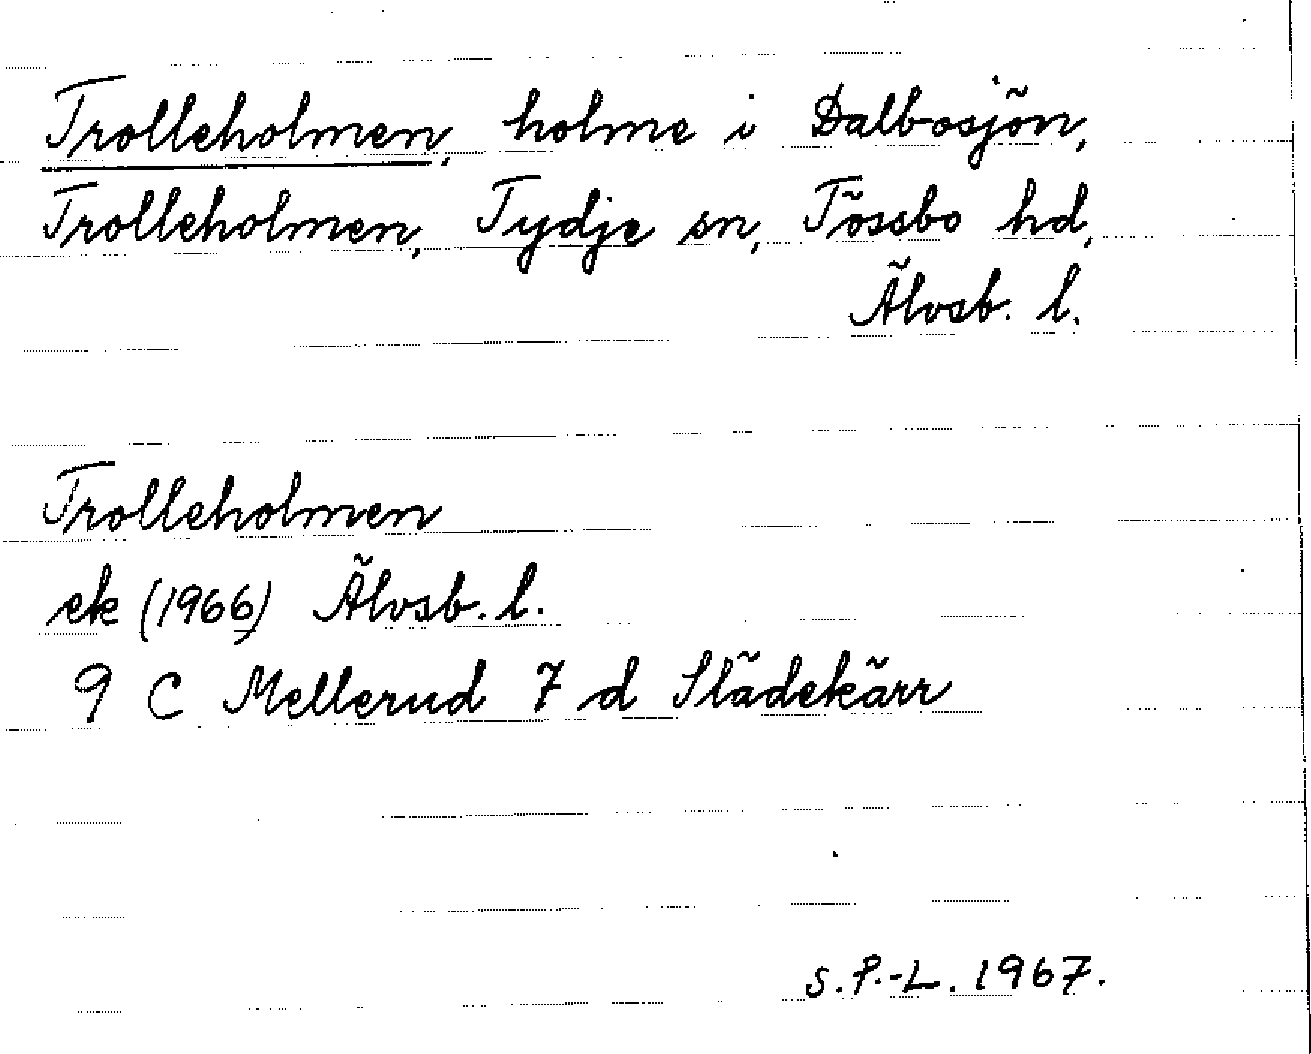 Trolleholmen, holme i Dalbosjön,
Trolleholmen, Tydje sn, Tössbo hd,
Älvsb. l.
Trolleholmen
ek (1966) Älvsb. l.
9 C Mellerud 7 d Slädekärr
S. P.-L. 1967.